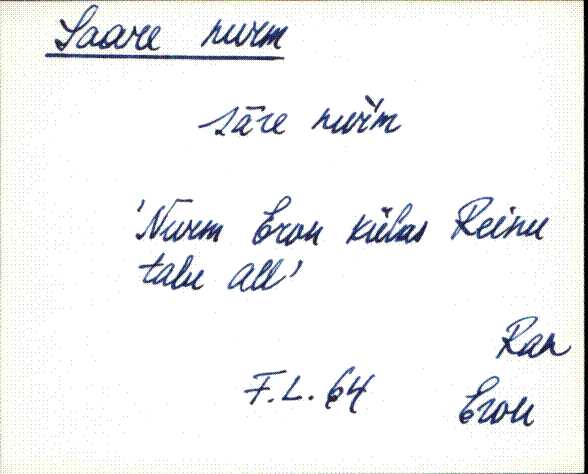 Saare nurm
sāre nuŕm
'Nurm Eron külas Reinu
talu all'
Ran
F.L. 64
Eron